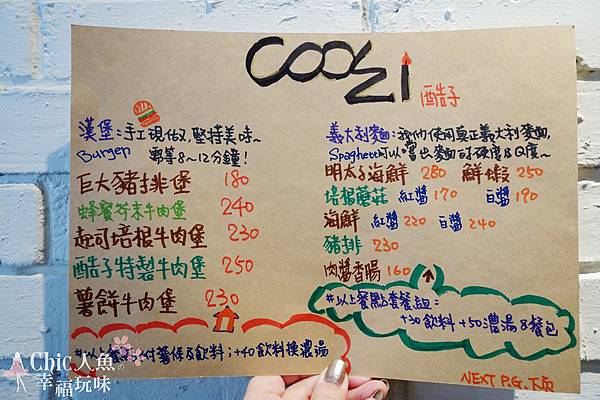 COOZI
酷子
漢堡:手工現做,堅持美味~
Burger 需等8~12分鐘!
巨大豬排堡 180
蜂蜜芥末牛肉堡 240
起司培根牛肉堡 230
酷子特製牛肉堡 250
薯餅牛肉堡 230
#以上餐點附薯條&飲料;+40飲料換濃湯
義大利麵:我們使用真正義大利麵,
Spaghetti可以嚐出麵的硬度&Q度~
明太子海鮮 280 鮮蝦 250
培根蘑菇 紅醬 170 白醬 190
海鮮 紅醬 220 白醬 240
豬排 230
肉醬香腸 160
#以上餐點套餐組:
+30飲料 +50濃湯&餐包
NEXT P.G. 下頁
Chic人魚の
幸福玩味